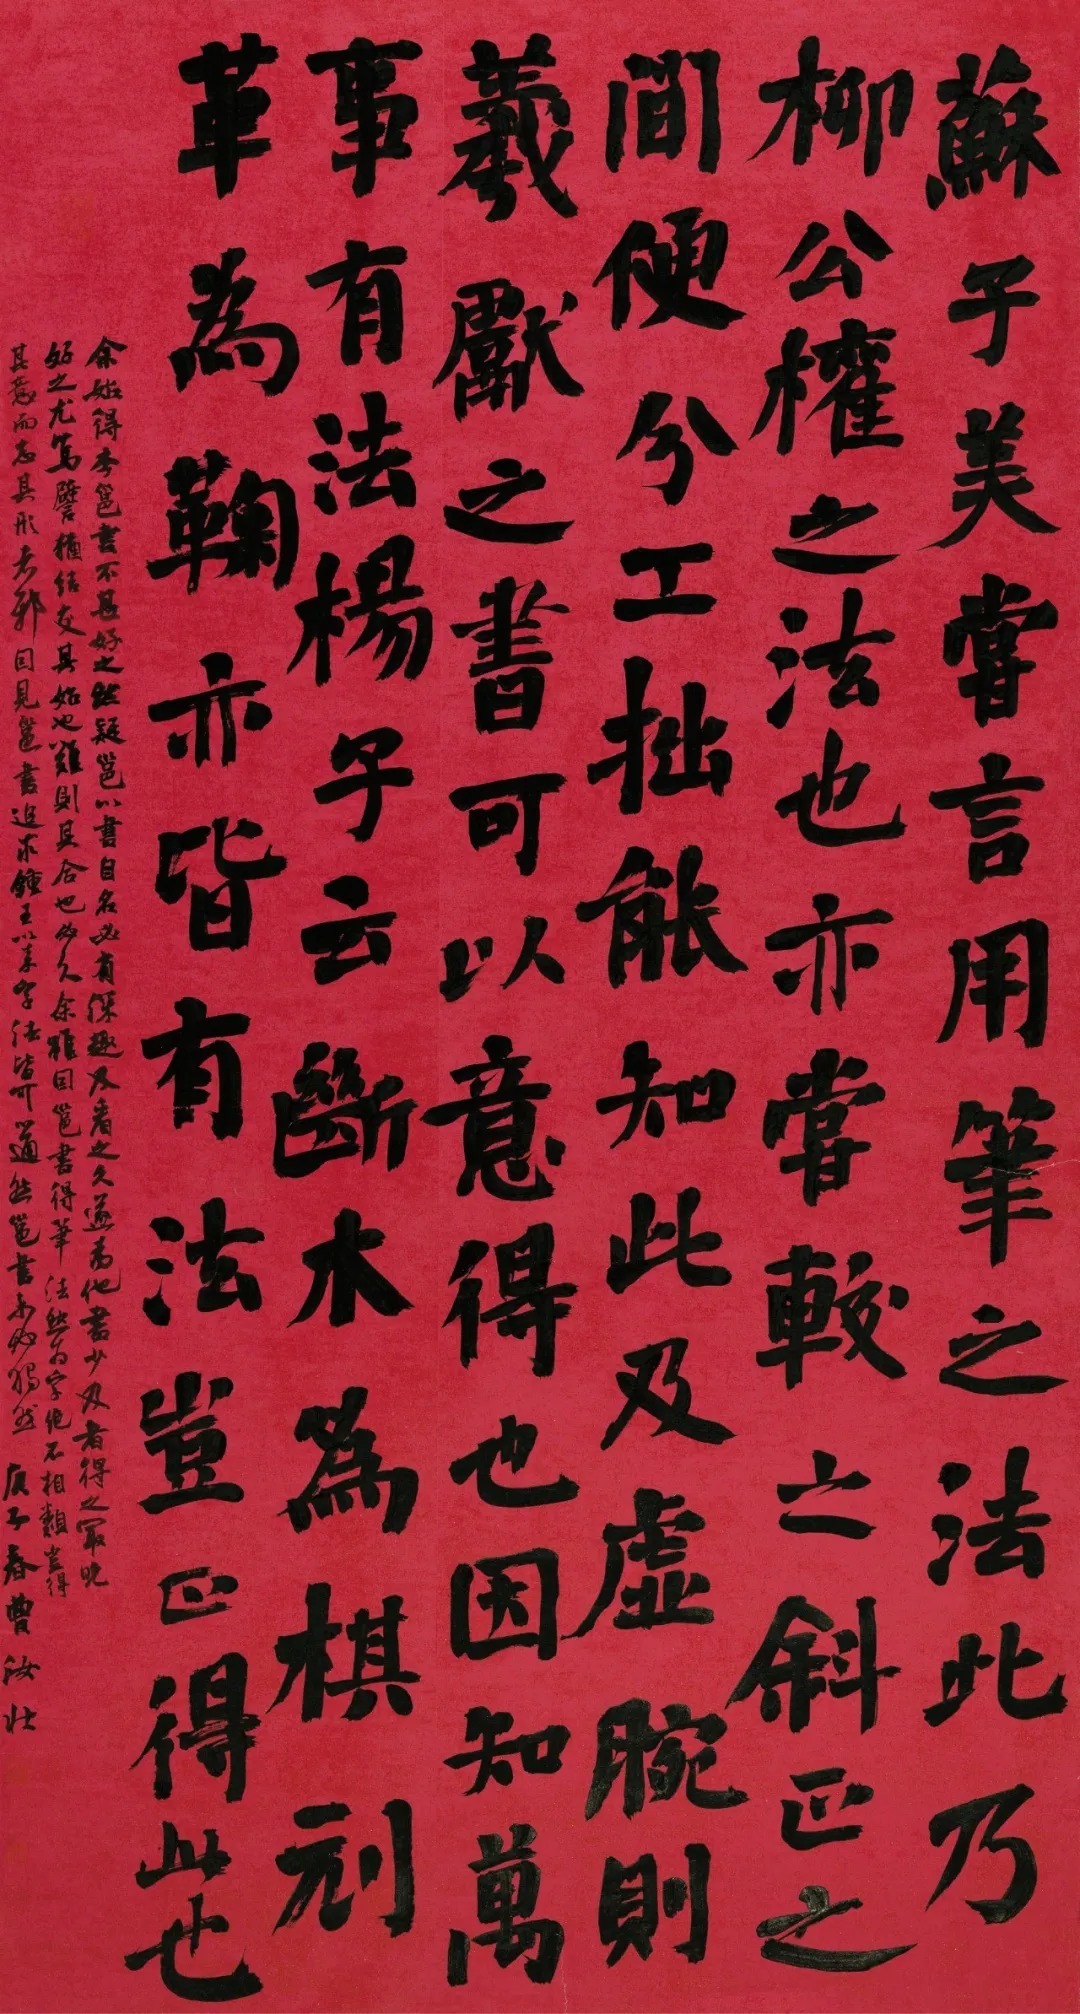 蘇子美嘗言用筆之法此乃
柳公權之法也亦嘗較之斜正之
間便分工拙能知此及虛腕則
羲獻之書可以意得也因知萬
事有法楊子云斷木爲棋刓
革為鞠亦皆有法豈正得此也
余始得李邕書不甚好之然疑邕以書自名必有深趣及看之久遂為他書少及者得之最晚
好之尤篤譬猶結交其始也難則其合也必久余雖因邕書得筆法然為字絕不相類豈得
其意而忘其形者邪因見邕書追求鍾王以來字法皆可以通然邕書未必獨然 庚子春曹汝壯